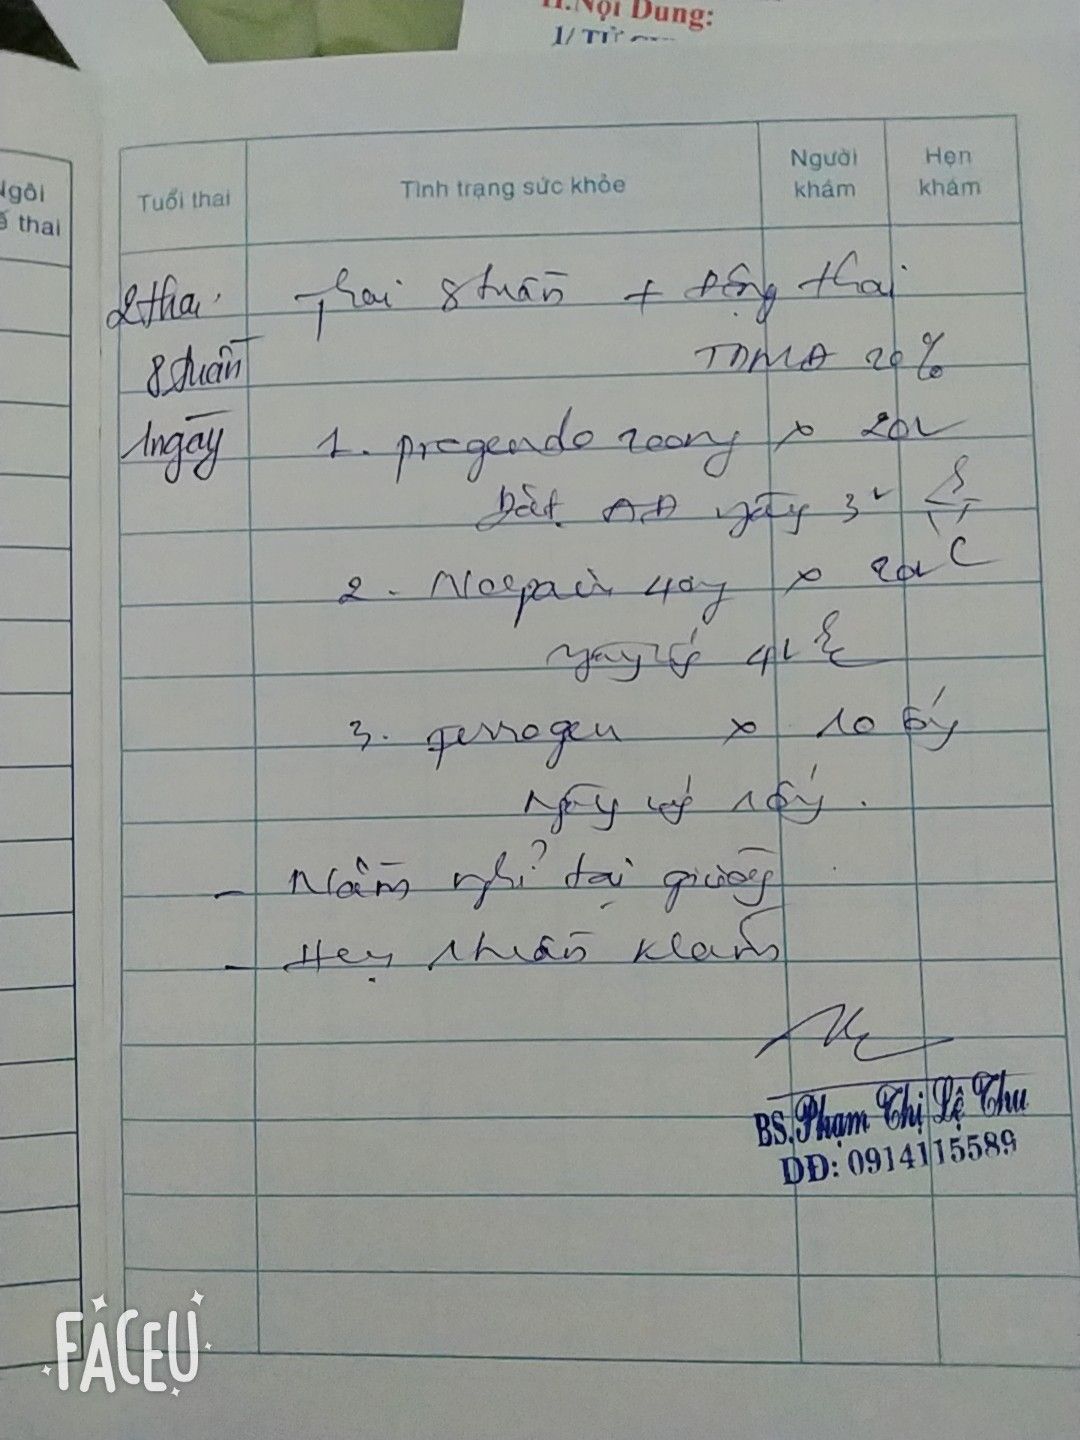 II.Nội Dung:
1/
Ngôi
thai
Tuổi thai
Tình trạng sức khỏe
Người khám
Hẹn khám
2 thai
8 tuần
1 ngày
Thai 8 tuần + động thai
TDMA 20%
1. pregendo 200mg x 20v
Đặt ÂĐ ngày 3v
2. Nospain 40mg x 20v
ngày uống 4v
3. Ferrogen x 10 ống
ngày uống 1 ống.
- Nằm nghỉ tại giường
- Hẹn 1 tuần khám
BS. Phạm Thị Lệ Thu
DĐ: 0914115589
FACEU